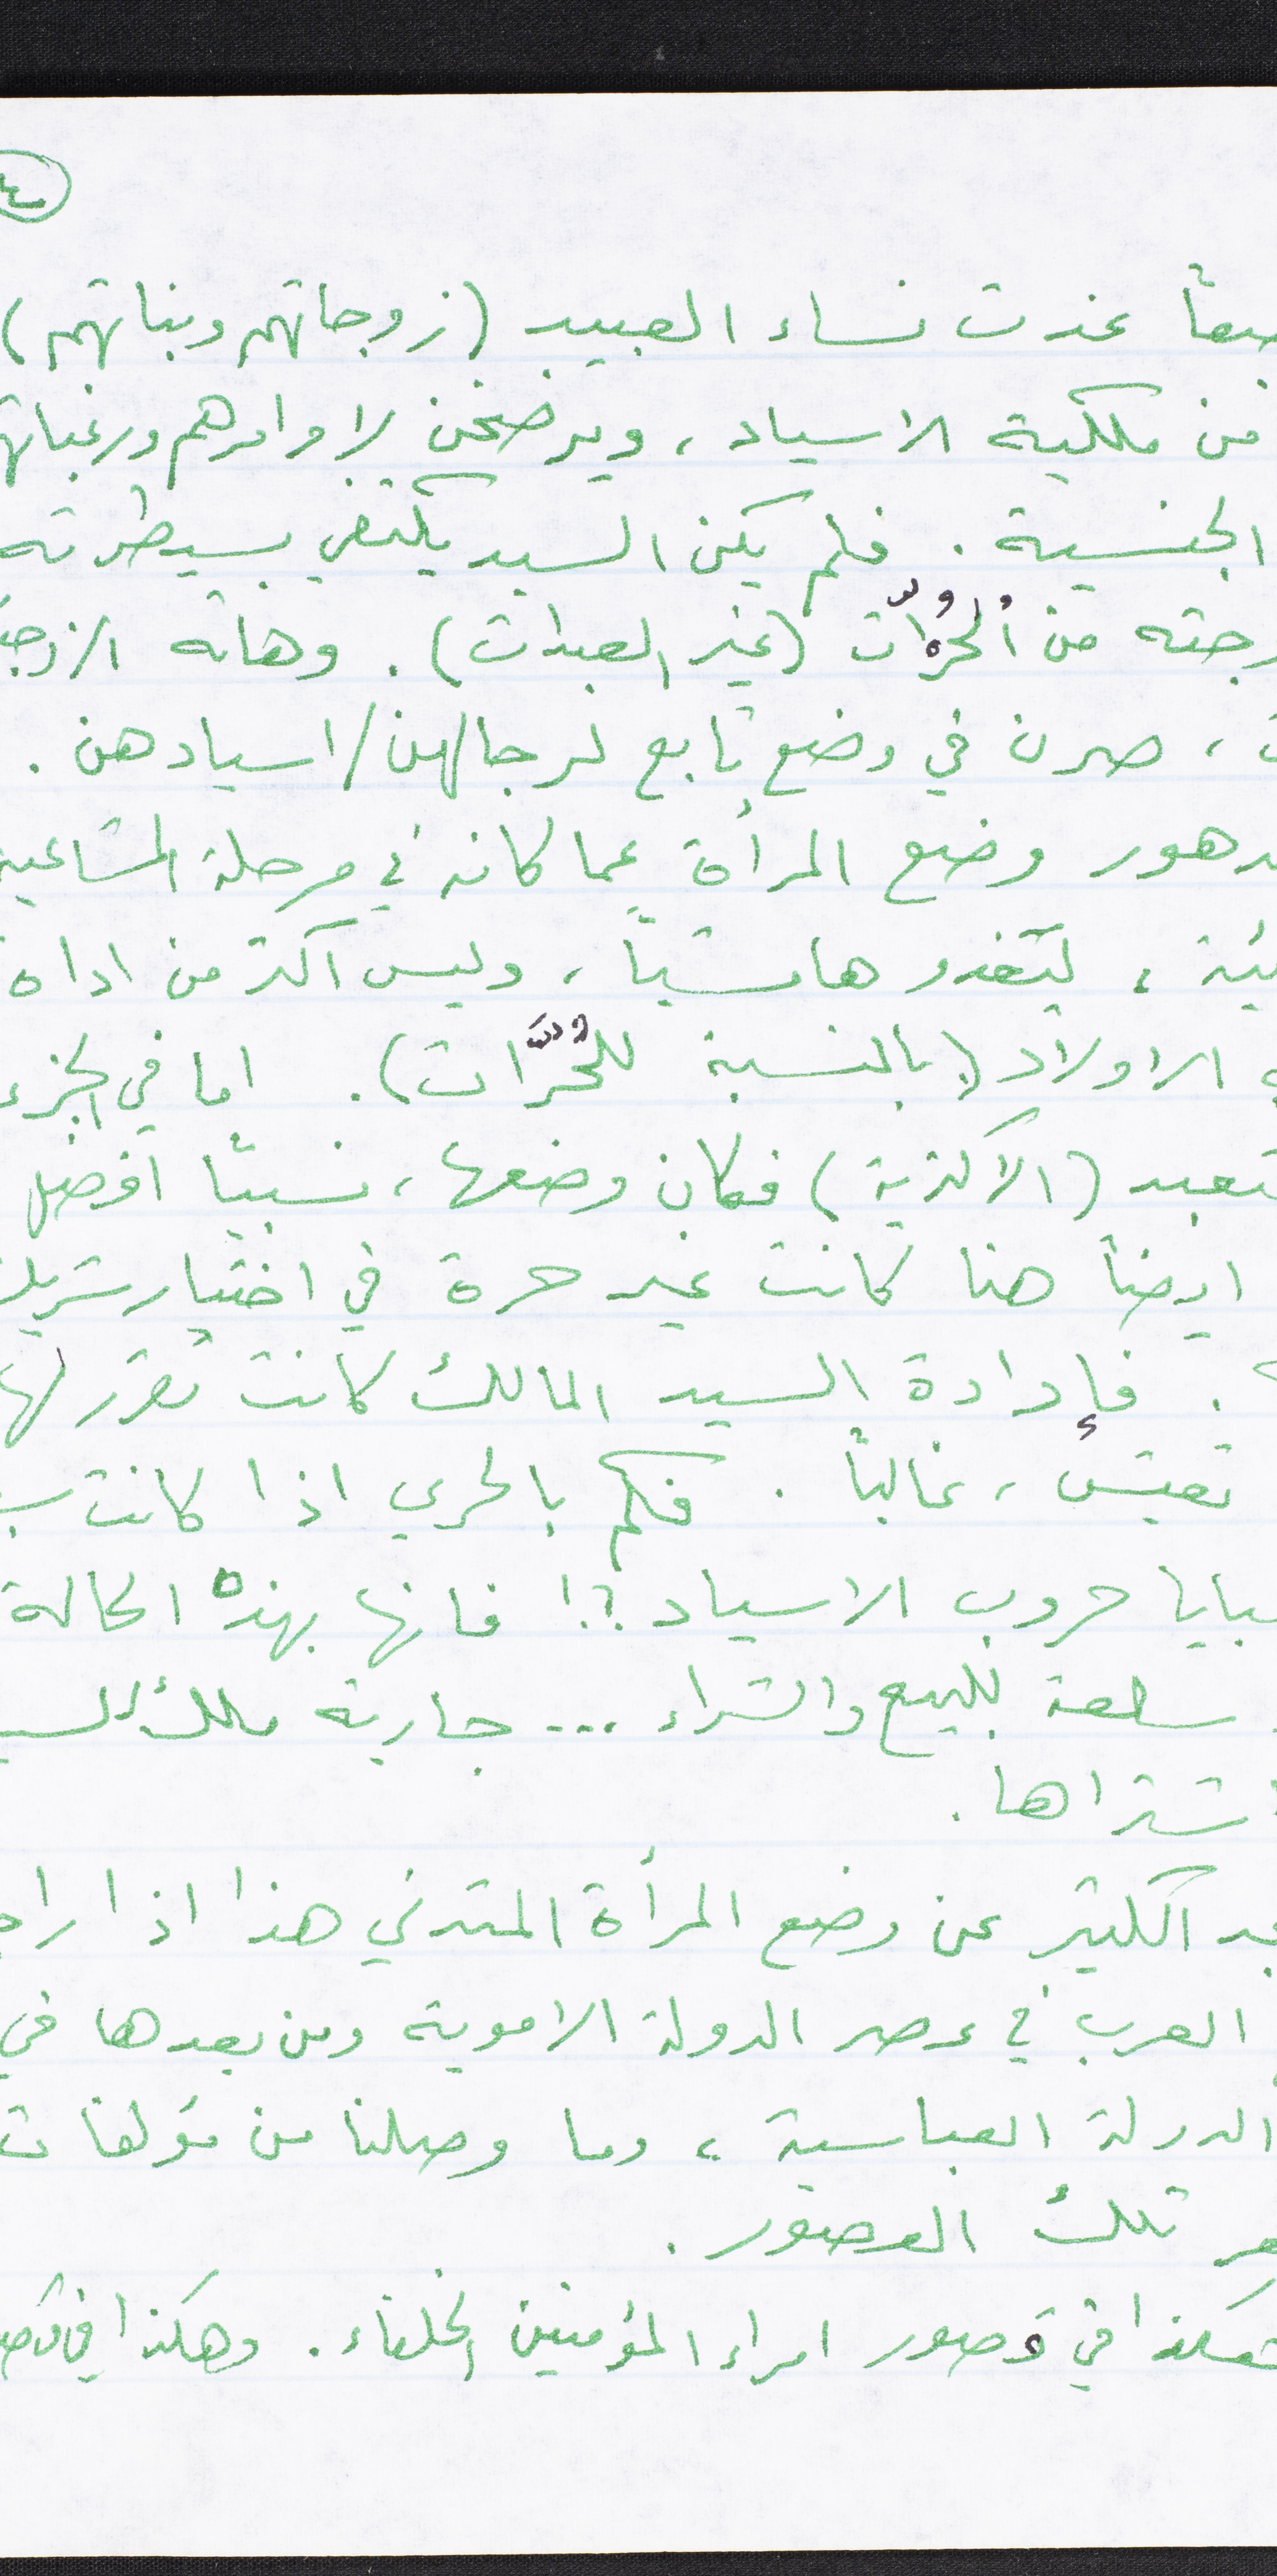 ٤
غدت نساء العبيد (زوجاتهم وبناتهم)
من ملكية الاسياد، ويرضخن لاوامرهم ورغباته
الجنسية. فلم يكن السيد يكتفي بسيطرته
من الحرّات (غير العبدات). وهاته الزوجا
، صرن في وضع تابع لرجالهن/اسيادهن.
دهور وضع المرأة عما كانه في مرحلة المشاعية
ئية، لتغدو هامشياً، وليس اكثر من اداة
الاولاد (بالنسبة للحُرَّات). اما في الجزء
تعبد (الاكثرية) فكان وضعها، نسبيّاً افضل
ايضاً هنا كانت غير حرة في اختيار شريك
. فإرادة السيد المالك كانت تقرر لها
تعيش، غالباً. فكم بالحري اذا كانت
سبايا حروب الاسياد؟! فانها بهذه الحالة
سلعة للبيع والشراء ... جارية ملك السيـ
اشتراها.
جد الكثير عن وضع المرأة المتدني هذا اذا راجـ
العرب في عصر الدولة الاموية ومن بعدها في
الدولة العباسية، وما وصلنا من مؤلفات
تلك العصور.
هكذا في قصور امراء المؤمنين الخلفاء. وهكذا في قصـ